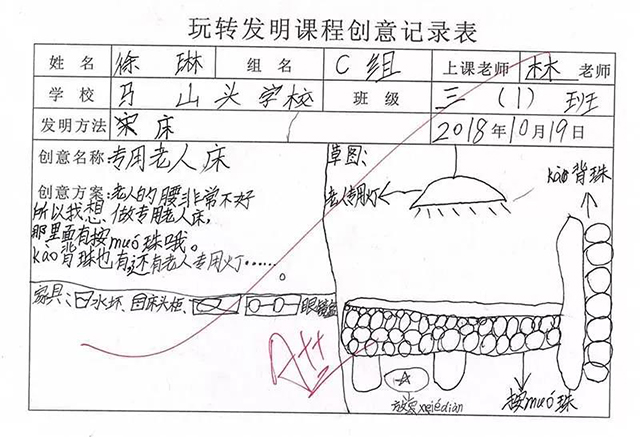 玩转发明课程创意记录表
姓名 徐琳 组名 C组 上课老师 林 老师
学校 马山头学校 班级 三(1)班
发明方法 床 2018年10月19日
创意名称 专用老人床
创意方案:老人的腰非常不好
所以我想做专用老人床,
那里面有按muó珠哦。
kào背珠也有,还有老人专用灯……。
家具、水杯、床头柜、眼镜
草图:
老人专用灯
kào背珠
放 xiédiàn
按muó珠
A++